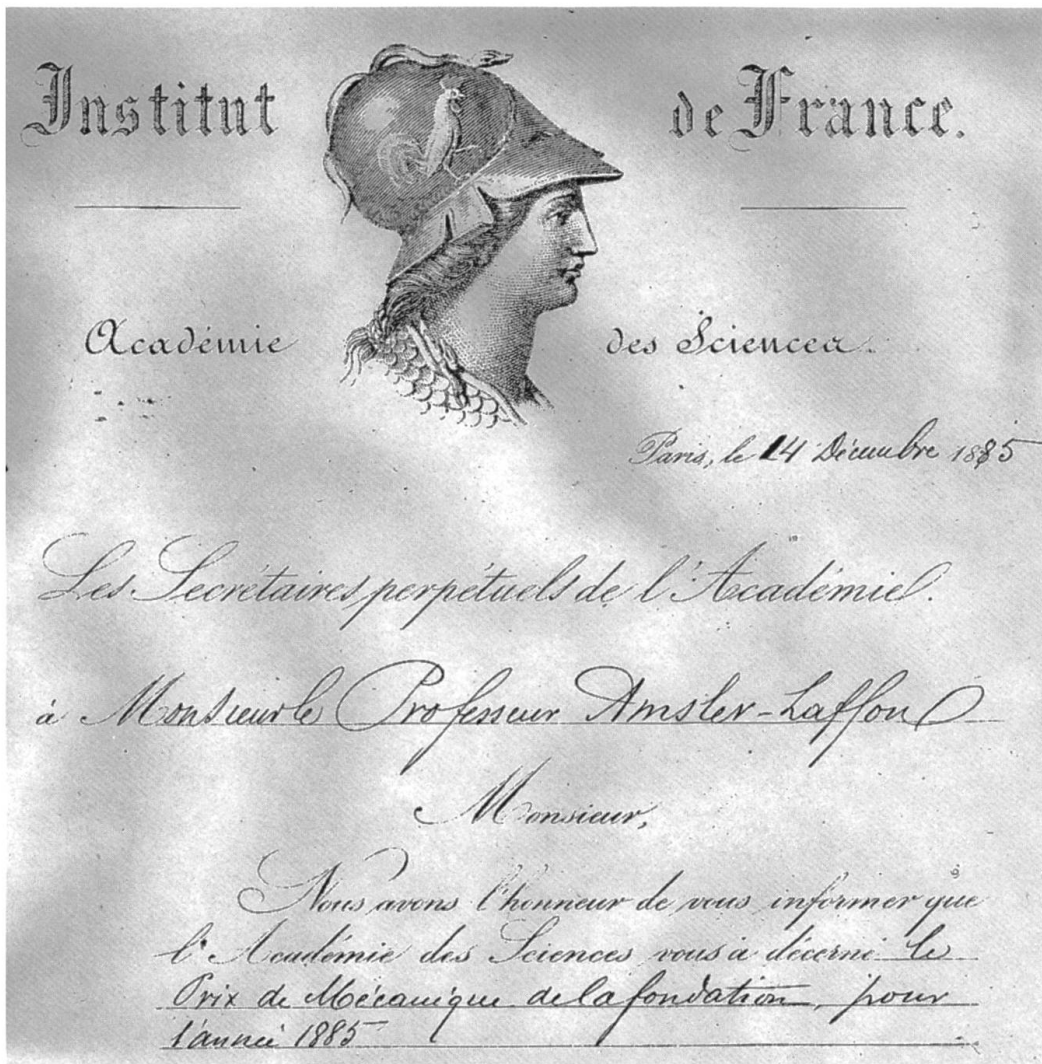 Institut de France.
Académie des Sciences.
Paris, le 14 Décembre 1885
Les Secrétaires perpétuels de l'Académie.
à Monsieur le Professeur Amsler-Laffon
Monsieur,
Nous avons l'honneur de vous informer que
l'Académie des Sciences vous a décerné le
Prix de Mécanique de la fondation, pour
l'année 1885